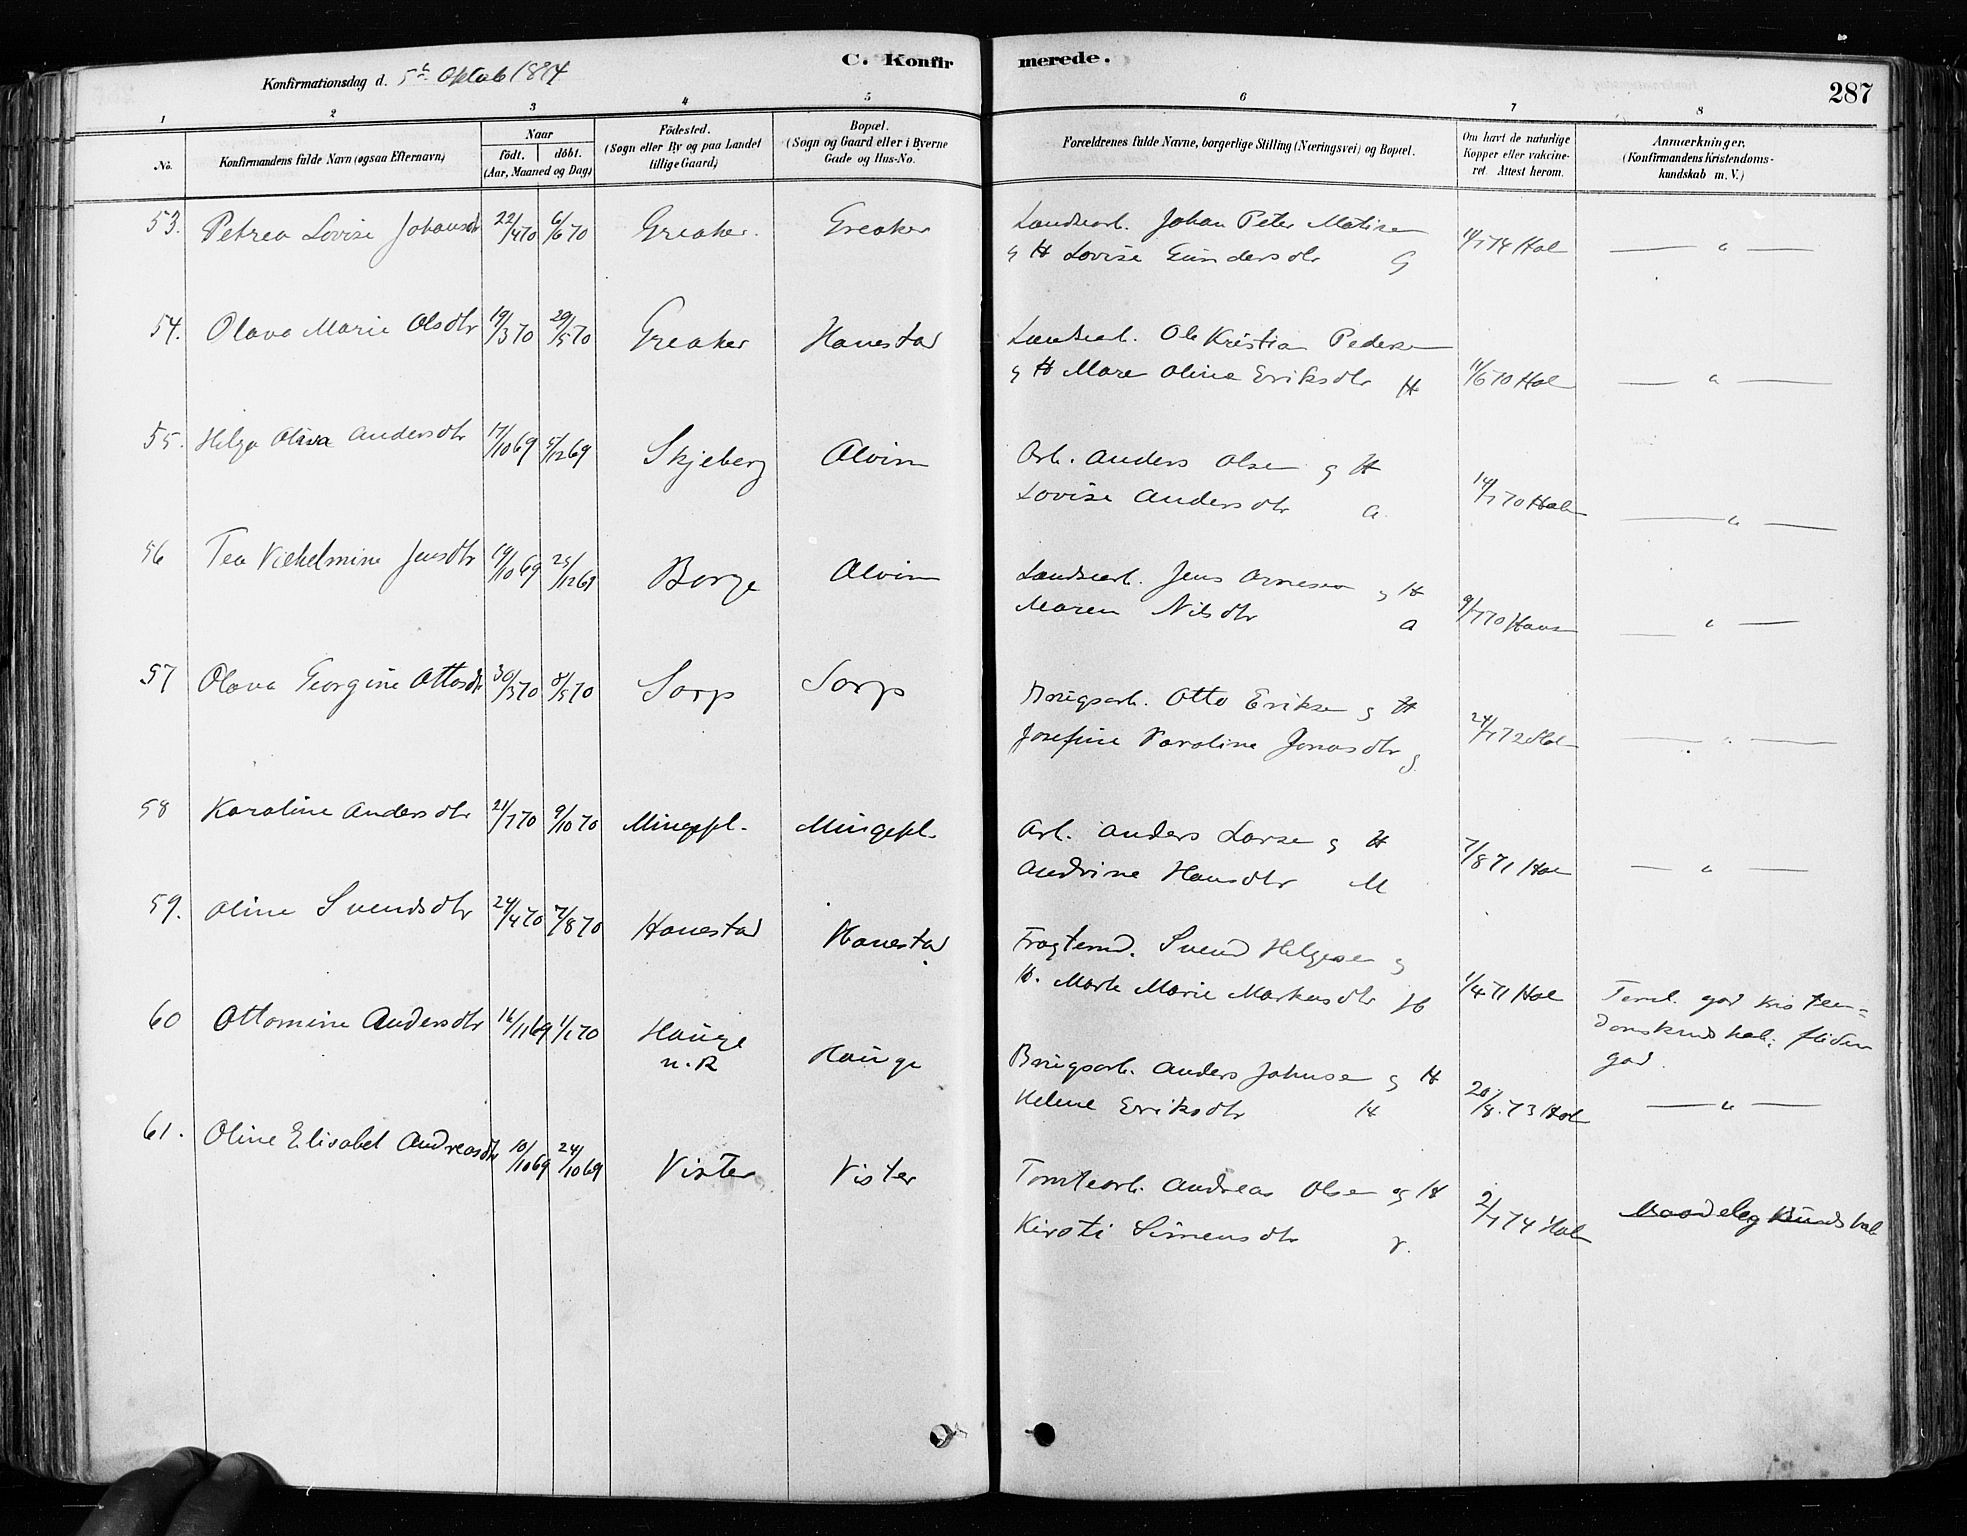 Konfirmationsdag d. 5te Oktob 1884
C. Konfir merede.
287
1 2 3 4 5 6 7 8
No.
Konfirmandens fulde Navn (ogsaa Efternavn)
Naar
födt. döbt.
(Aar, Maaned og Dag)
Födested.
(Sogn eller By og paa Landet
tillige Gaard)
Bopæl.
(Sogn og Gaard eller i Byerne
Gade og Hus-No.
Forældrenes fulde Navne, borgerlige Stilling (Næringsvei) og Bopæl.
Om havt de naturlige
Kopper eller vakcine-
ret. Attest herom.
Anmærkninger.
(Konfirmandens Kristendoms-
kundskab m. V.)
53. Petrea Lovise Johansdtr 22/4 70 6/6 70 Greaker. Greaker
Landsarb. Johan Peter Matisen
g H Lovise Gundersdtr G
54. Olava Marie Olsdtr 19/3 70 29/5 70 Greaker Hanestad
Landsarb. Ole Kristian Pedersen
g H Mare Oline Eriksdtr H 11/6 70 Hol — " —
55. Helga Andersdtr 17/10 69 5/12 69 Skjeberg Alvim
Arb. Anders Olsen g H
Lovise Andersdtr a — " —
56 Tea Vilhelmine Jensdtr 19/10 69 25/12 69 Borge Alvim
Landsarb. Jens Arnesen g H
Maren Nilsdtr a 9/7 70 — " —
57 Olava Georgine Ottosdtr 30/3 70 8/5 70 Sorp Sorp
Brugsarb. Otto Eriksen g H
Josefine Karoline Jonasdtr S — " —
58 Karoline Andersdtr 21/7 70 9/10 70 Mingepl. Mingepl.
Arb. Anders Larsen g H
Andrine Hansdtr M 7/8 71 Hol — " —
59. Oline Svendsdtr 24/4 70 7/8 70 Hanestad Hanestad
Fragtemd. Svend Helgesen g
H. Marte Marie Markusdtr H 1/4 71 Hol
Teml. god Kristen-
domskundskab; fliden
god.
60 Ottomine Andersdtr 16/11 69 1/1 70 Hauge
n. R Hauge
Brugsarb. Anders Johnsen g H
Helene Eriksdtr H 20/8. 73 Hol — " —
61. Oline Elisabet Andreasdtr 10/10 69 24/10 69 Vister Vister
Tomtearb. Andreas Olsen og H
Kirsti Simensdtr V. 2/7 74 Hol
Maadelig Kundskab